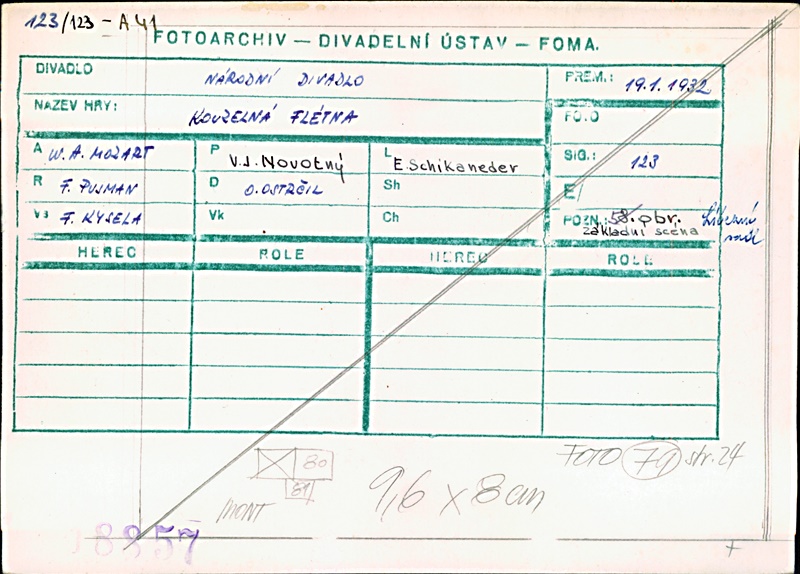 123/123 - A 41
FOTOARCHIV — DIVADELNÍ ÚSTAV — FOMA.
DIVADLO NÁRODNÍ DIVADLO
PREM.: 19.1.1932
NAZEV HRY: KOUZELNÁ FLÉTNA
FOTO
A W. A. MOZART P V.J. Novotný L E. Schikaneder
SIG.: 123
R F. PUJMAN D O. OSTRČIL Sh
E/
Vs F. KYSELA Vk Ch
POZN.: 58. obr.
základní scena
HEREC ROLE HEREC ROLE
FOTO 79 str. 24
80
81
9,6 x 8 cm
MONT
8857